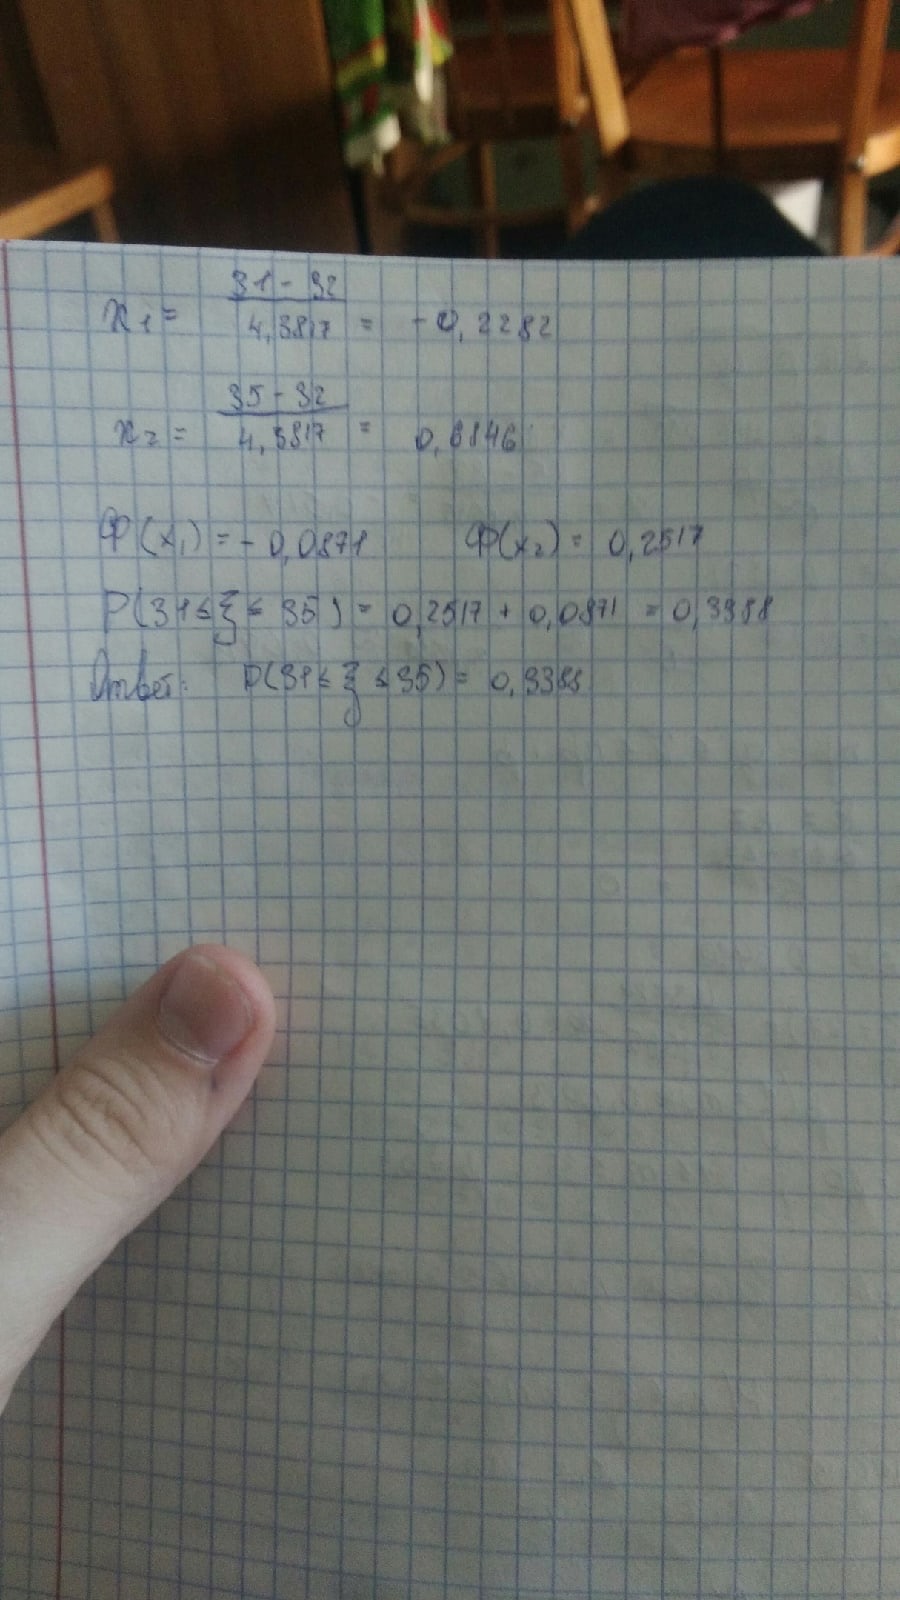 x₁ = (31 - 32) / 4,3817 = - 0,2282
x₂ = (35 - 32) / 4,3817 = 0,6846
Ф(x₁) = - 0,0871 Ф(x₂) = 0,2517
P(31 ≤ ξ ≤ 35) = 0,2517 + 0,0871 = 0,3388
Ответ: P(31 ≤ ξ ≤ 35) = 0,3388